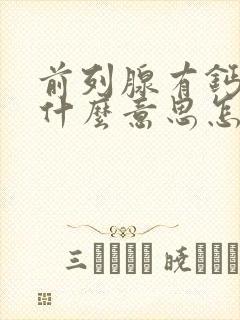 前列腺有鈣
什麼意思怎
三 暁